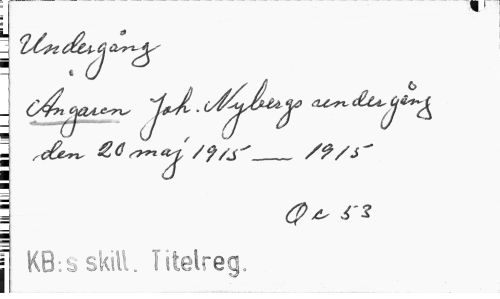 Undergång
Ångaren Joh. Nybergs undergång
den 20 maj 1915 — 1915
Qc 53
KB:s skill. Titelreg.